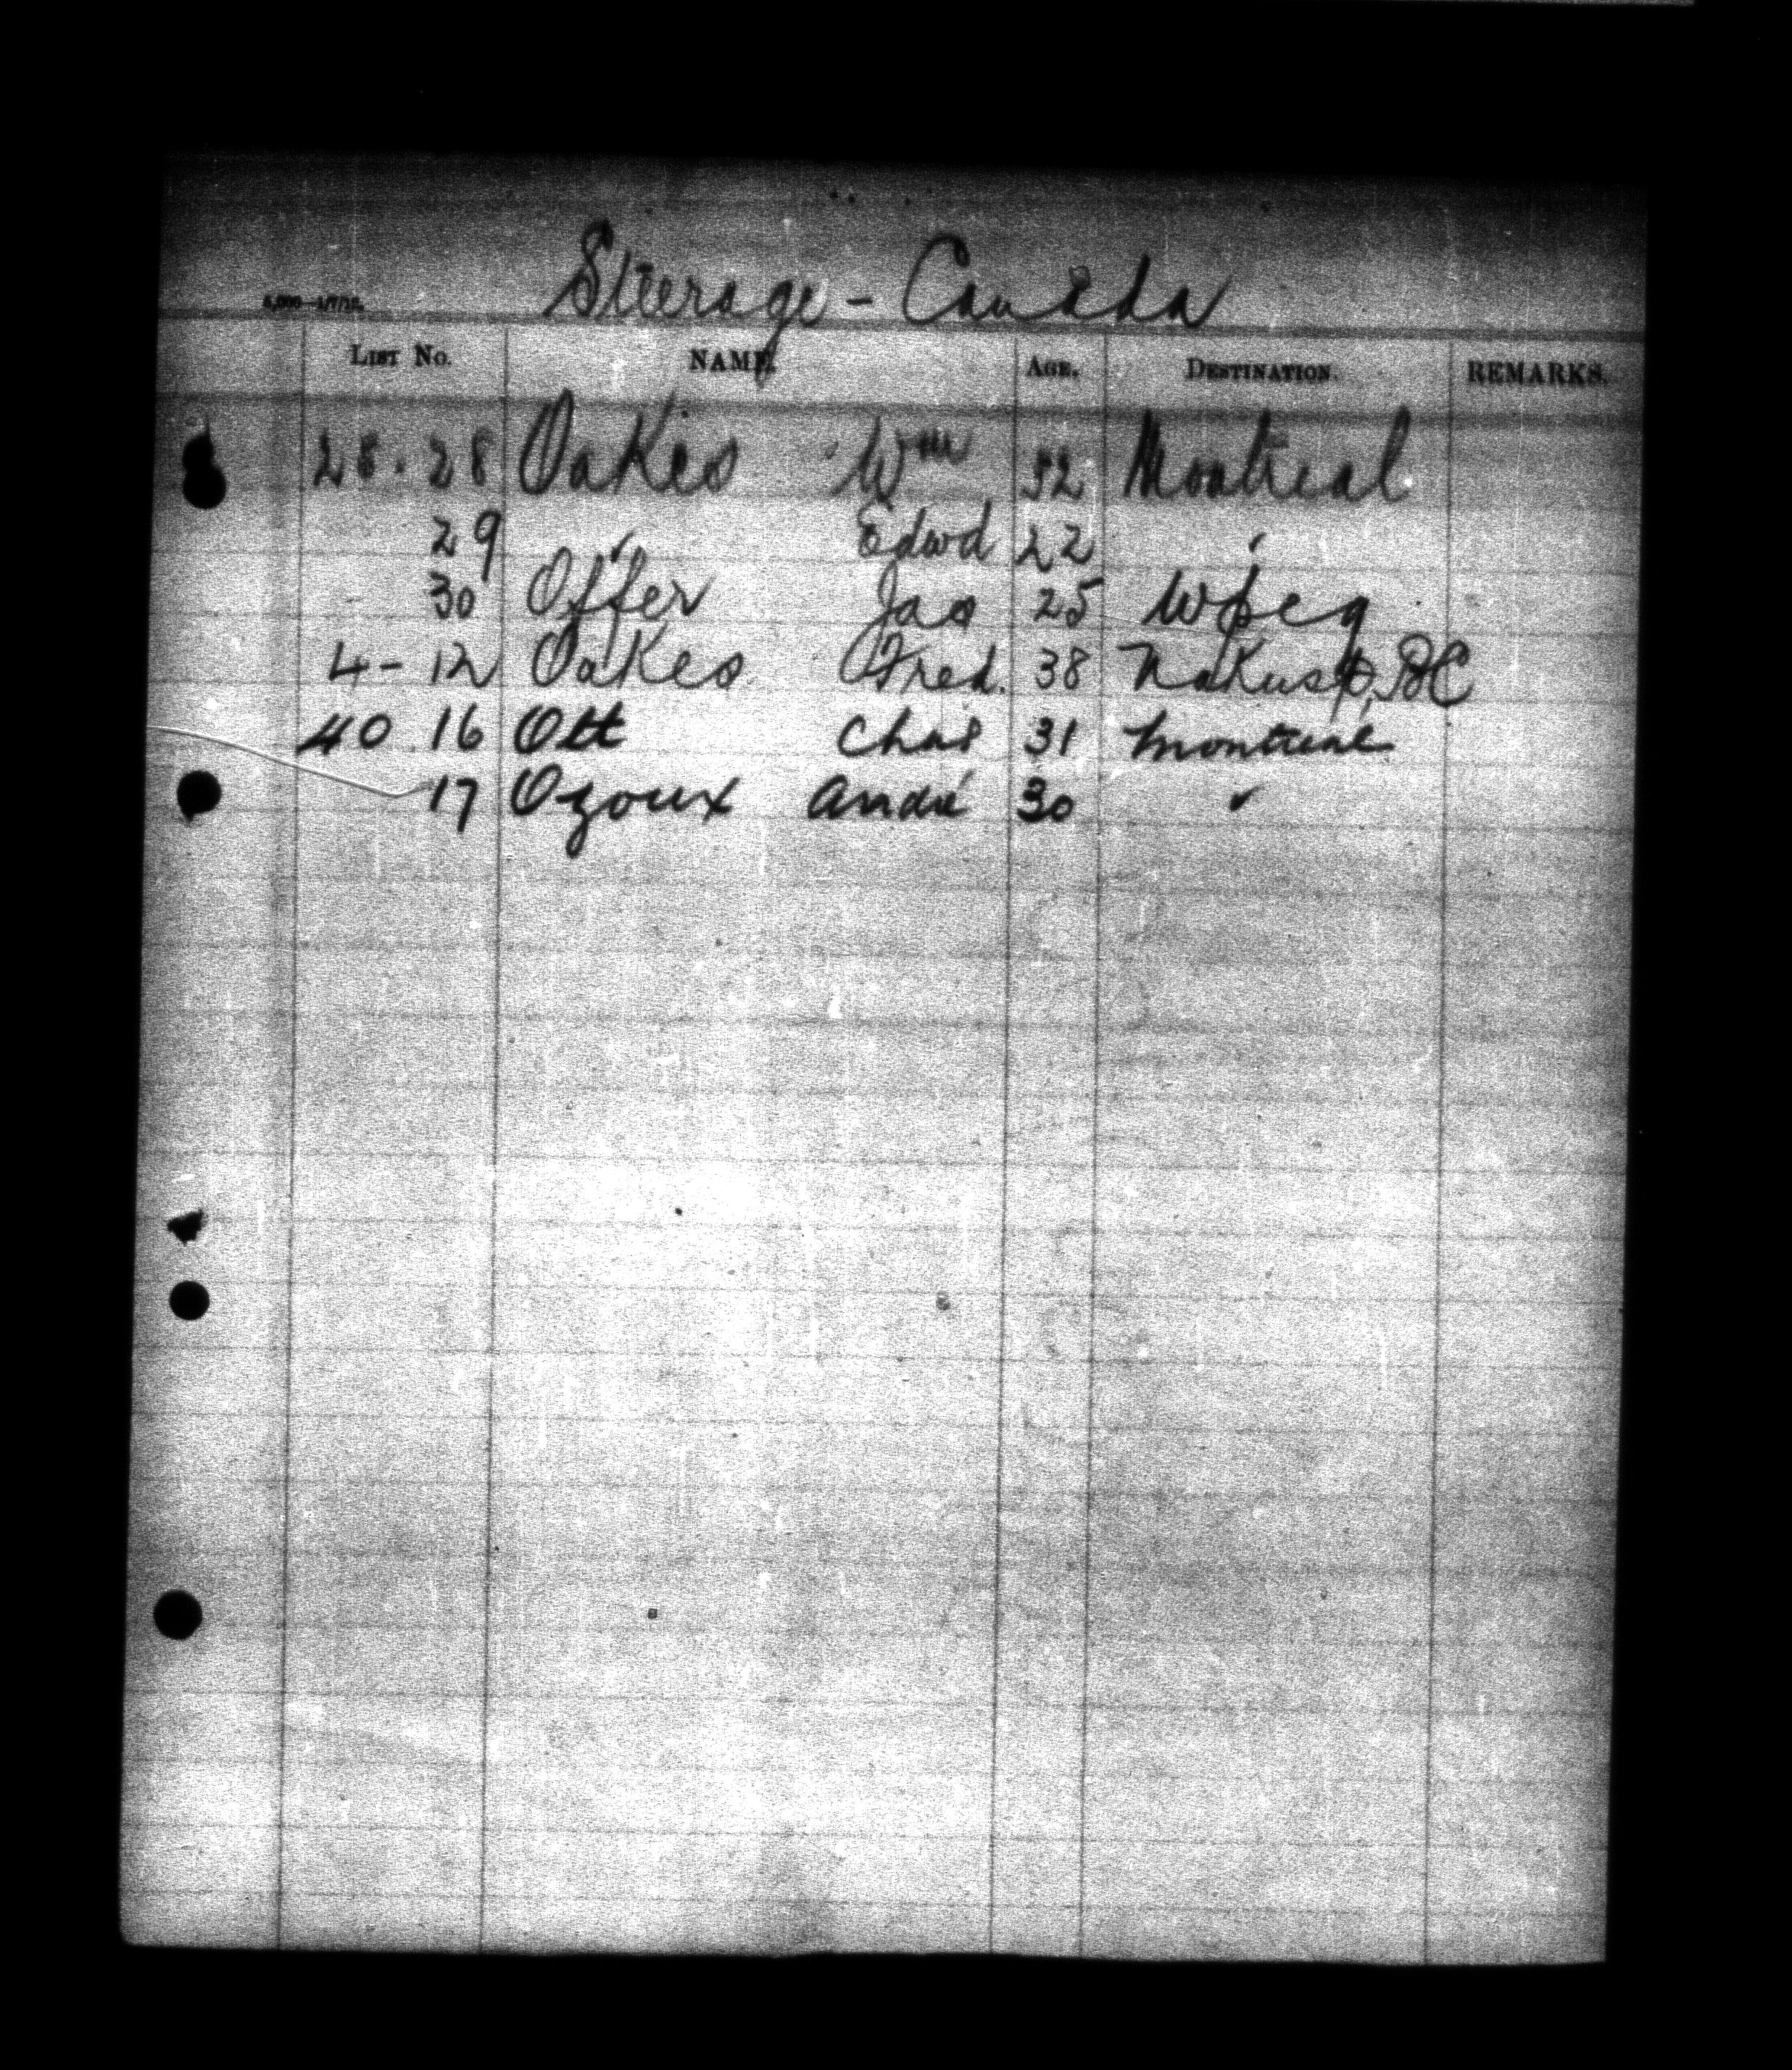 Steerage - Canada
5,000-1/7/12.
LIST NO. NAME. AGE. DESTINATION. REMARKS.
28 . 28 Oakes Wm 52 Montreal
29 " Edwd 22 "
30 Offer Jas 25 Wpeg
4 - 12 Oakes Fred. 38 Nakusp, BC
40 . 16 Ott Chas 31 Montreal
17 Ozoux André 30 "